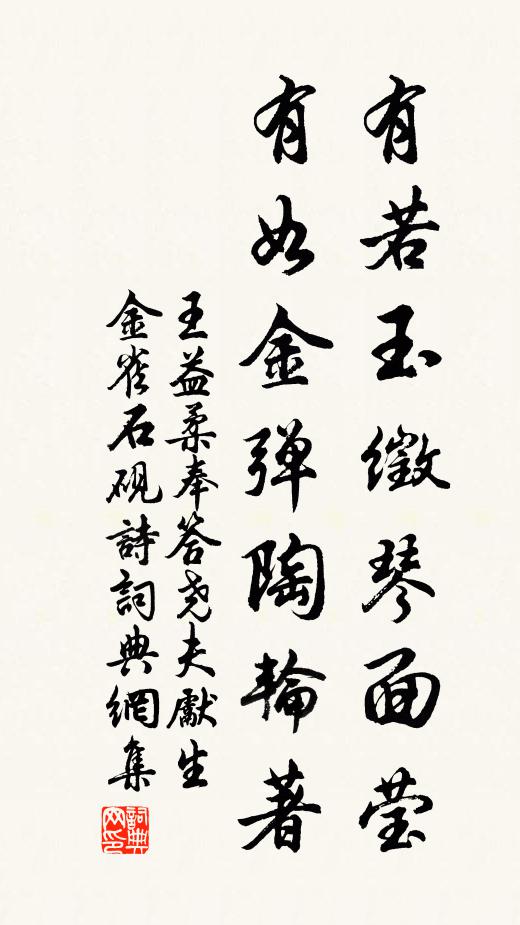 有若玉徽琴面莹
有如金弹陶輪著
王益柔奉答尧夫獻生
金雀石硯詩詞典網集
詞典网印